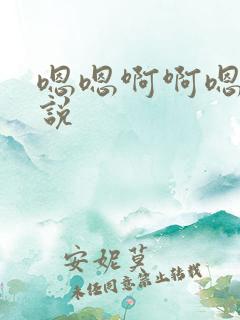 嗯嗯啊啊嗯
說
安妮莫
未经同意禁止转载